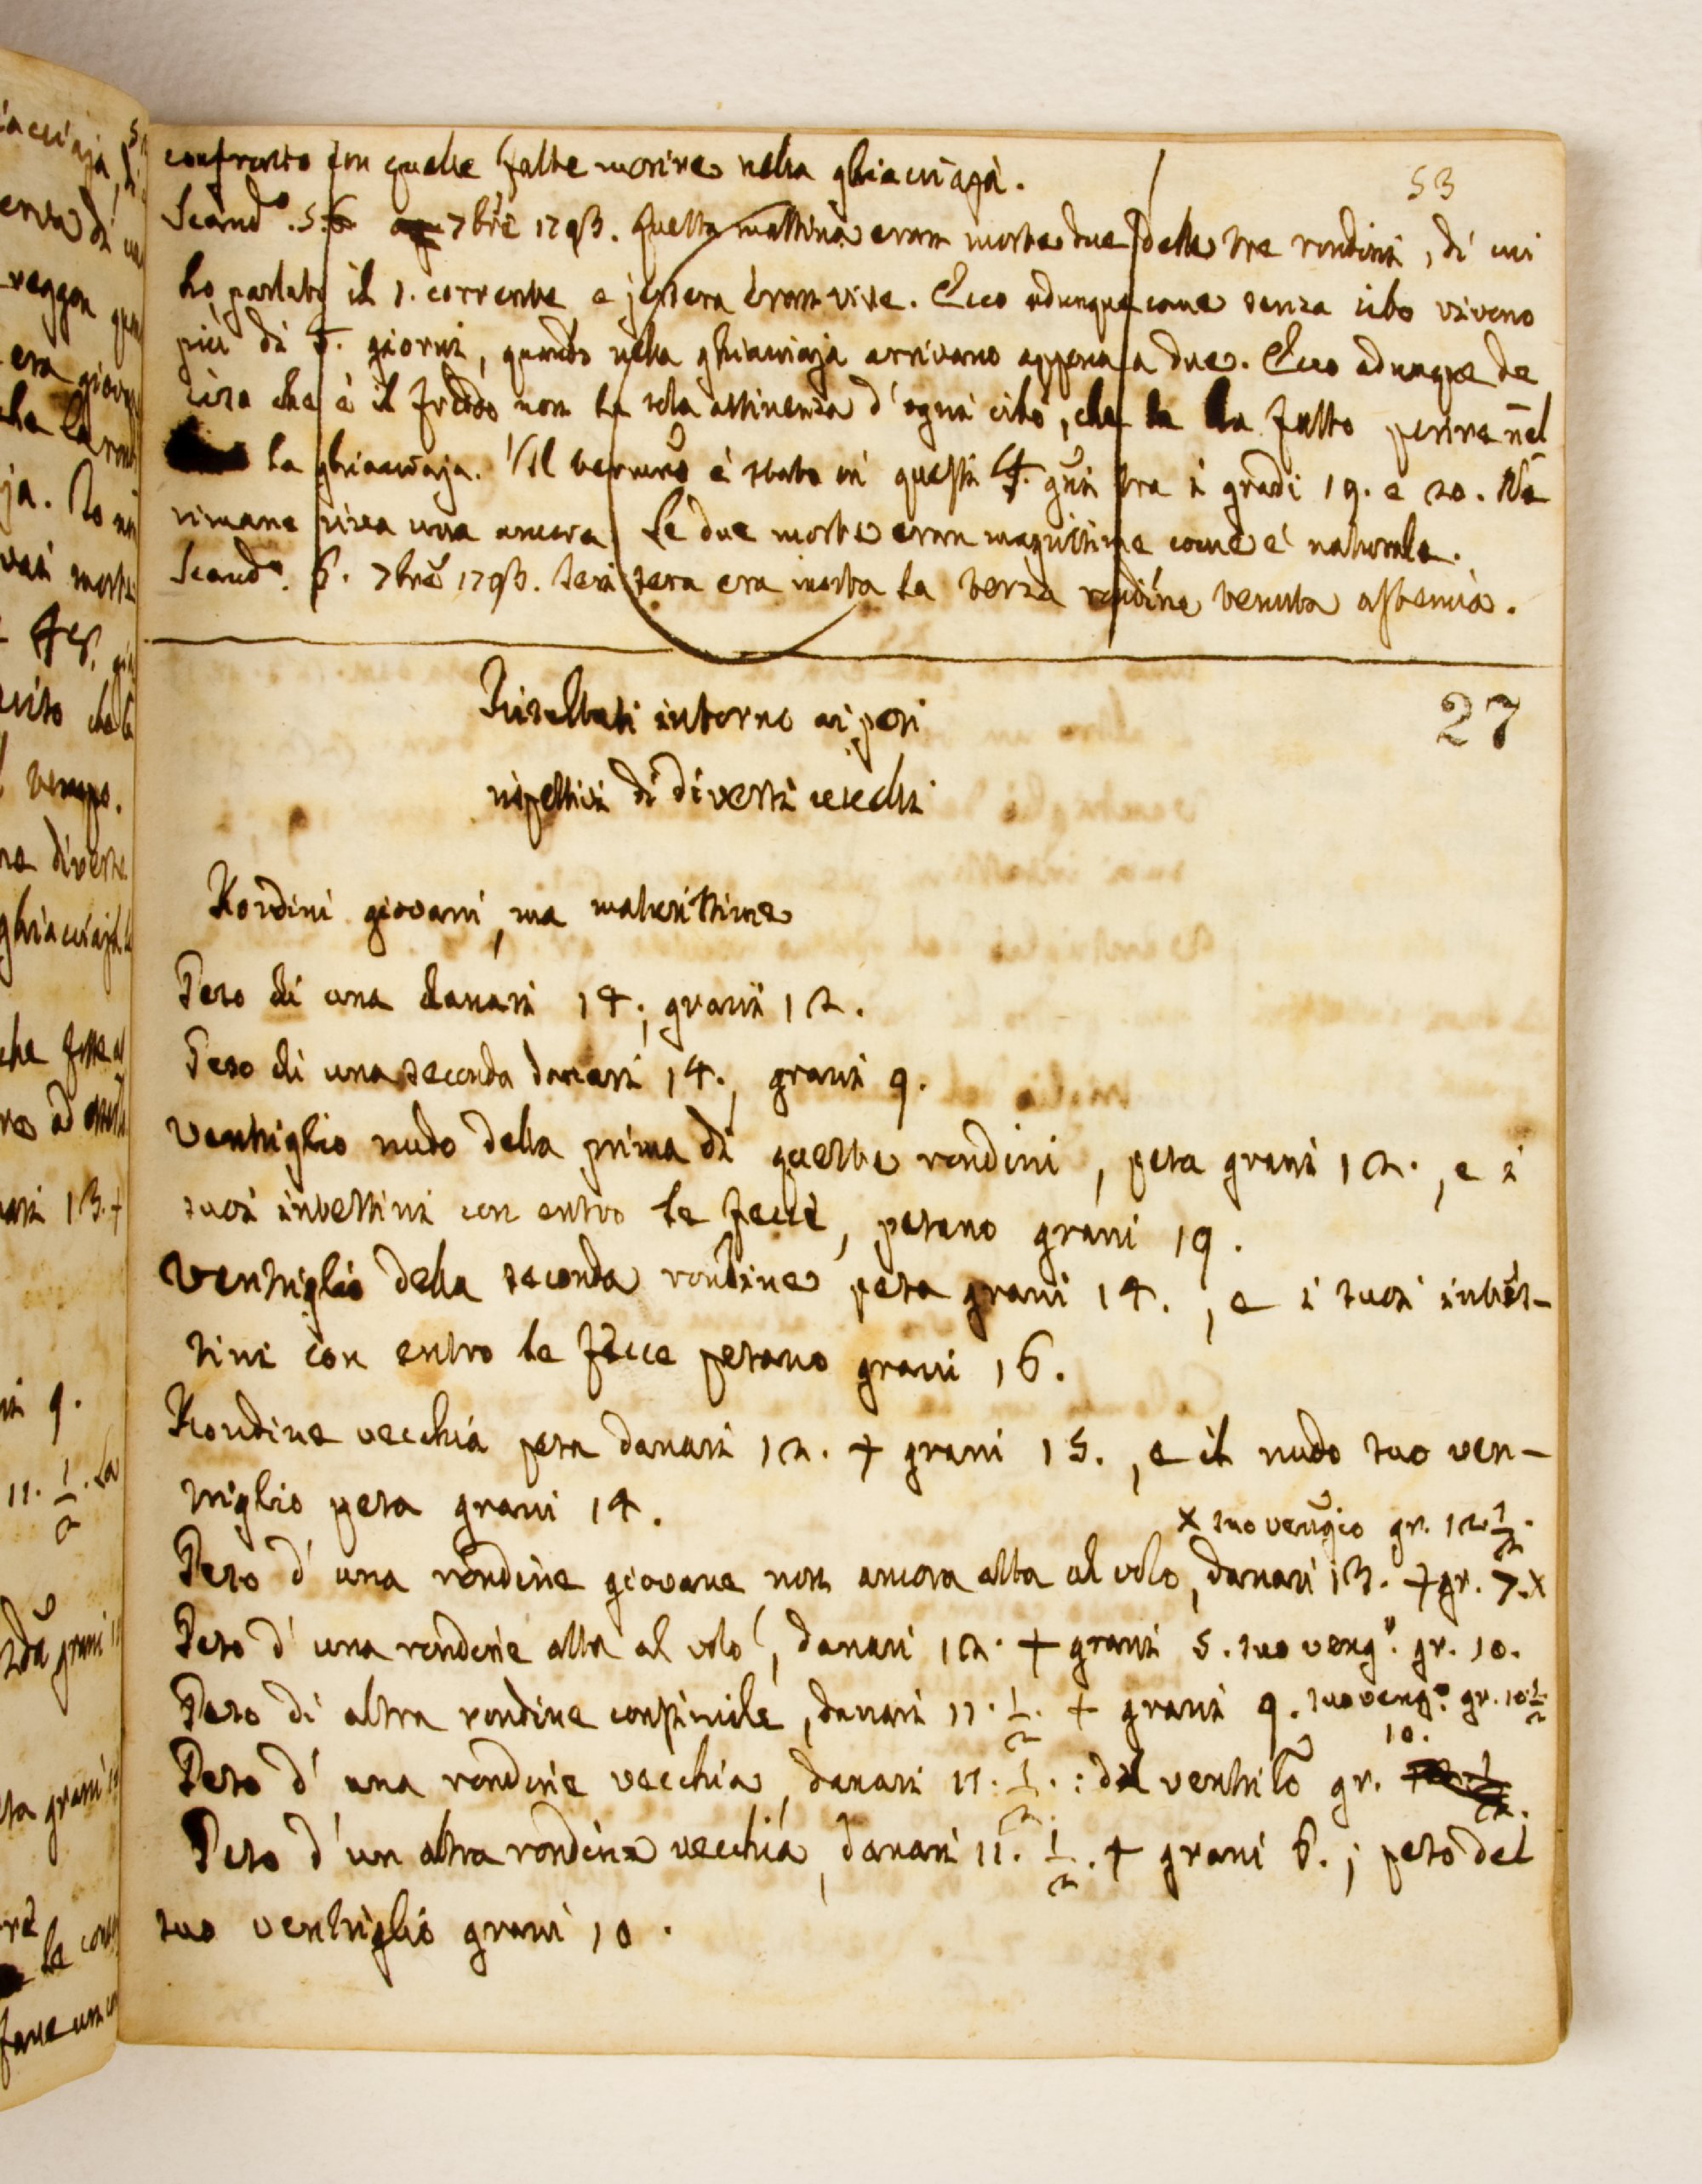 53
confronto con quelle fatte morire nella ghiacciaja.
Scand.º 5. 7bre 1793. Questa mattina eran morte due delle tre rondini, di cui
ho parlato il 1. corrente, e jersera eran vive. Ecco adunque come senza cibo vivono
più di 4. giorni, quando nella ghiacciaja arrivano appena a due. Ecco adunque de
ciso che è il freddo non la sola astinenza d'ogni cibo, che le ha fatto perire nel
la ghiacciaja. Il termro è stato in questi 4. gni tra i gradi 19. e 20. Ne
rimane viva una ancora. Le due morte eran magrissime, come è naturale.
Scand.º 6. 7bre 1793. Jeri sera era morta la terza rondine tenuta astemia.
27
Risultati intorno ai pesi
rispettivi di diversi uccelli
Rondini giovani, ma maturissime
Peso di una danari 14.; grani 12.
Peso di una seconda danari 14., grani 9.
Ventriglio nudo della prima di queste rondini, pesa grani 12., e i
suoi intestini con entro le fecce, pesano grani 19.
Ventriglio della seconda rondine pesa grani 14., e i suoi intes-
tini con entro le fecce pesano grani 16.
Rondine vecchia pesa danari 12. + grani 15., e il nudo suo ven-
triglio pesa grani 14.
x suo vengio gr. 12 1/2.
Peso d'una rondine giovane non ancora atta al volo, danari 13. + gr. 7. x
Peso d'una rondine atta al volo, danari 12. + grani 5. suo veng.º gr. 10.
Peso di altra rondine consimile, danari 11. 1/2. + grani 9. suo veng.º gr. 10 1/2
10.
Peso d'una rondine vecchia, danari 11. 1/2. : del ventrilo gr.
Peso d'un altra rondine vecchia, danari 11. 1/2. + grani 6.; peso del
suo ventriglio grani 10.